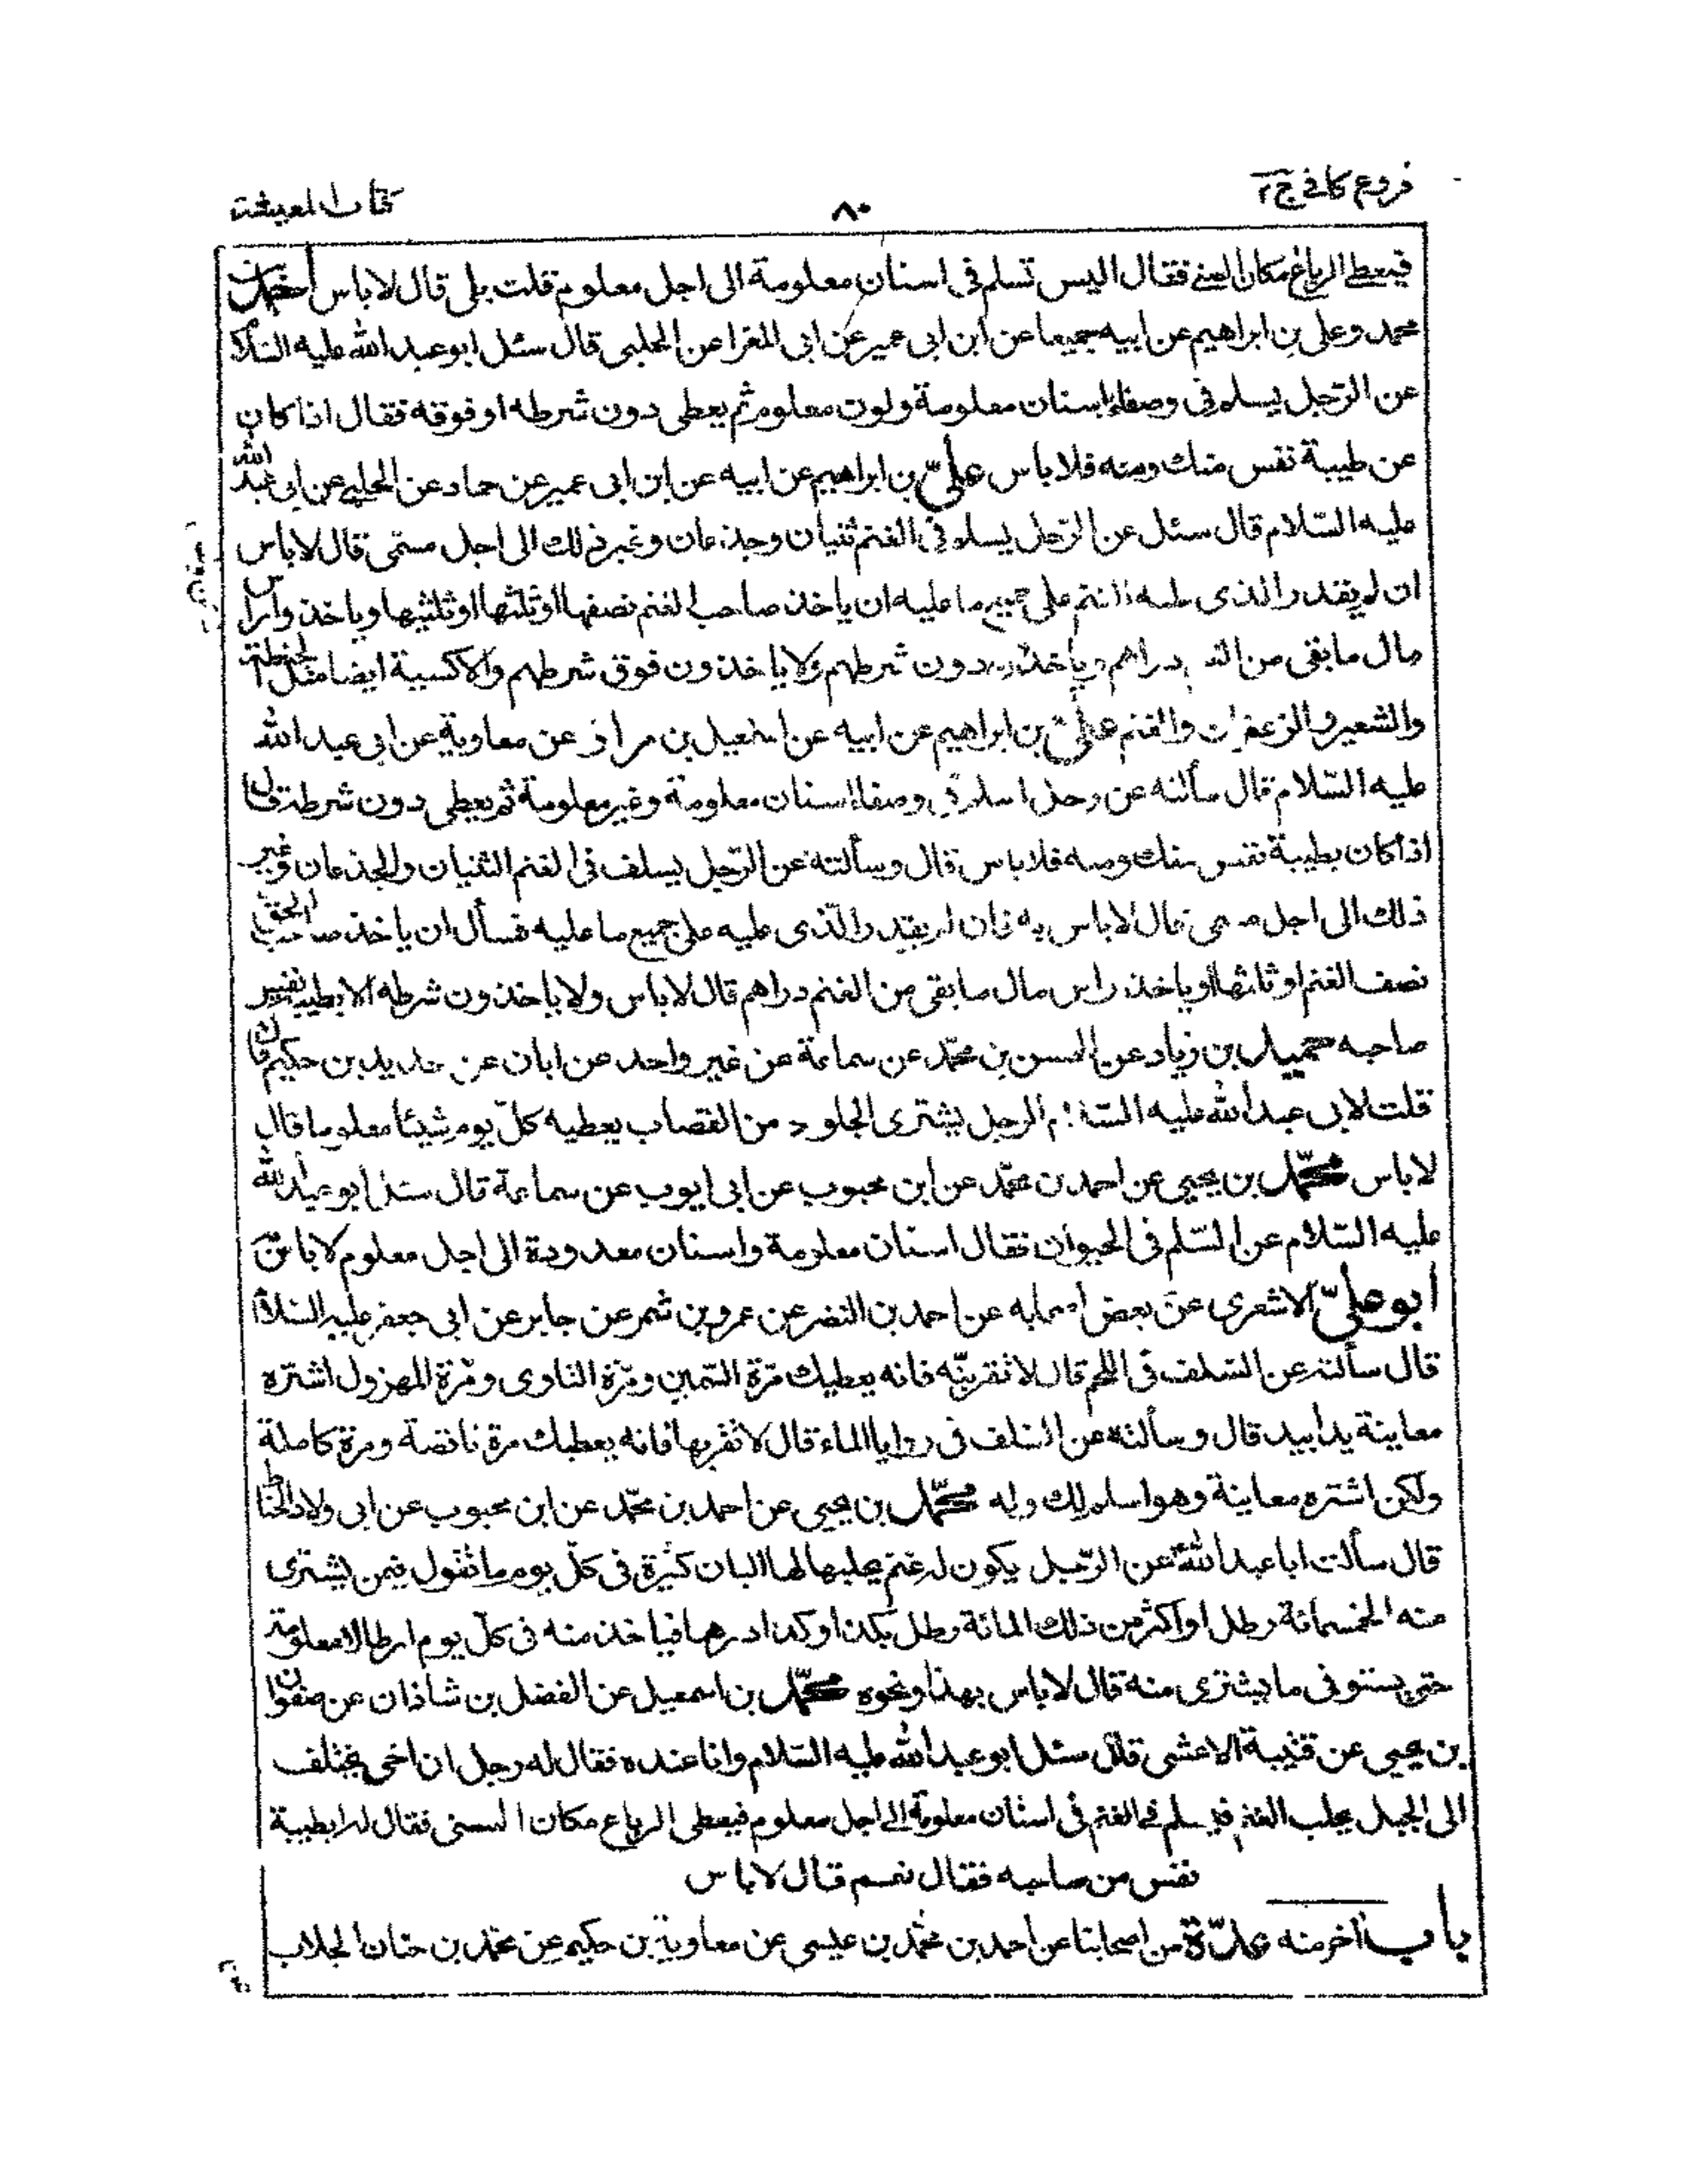 فروع كافى ج٢
٨٠
كتاب المعيشة
فيعطى الرباع مكان الثنى فقال اليس تسلم فى اسنان معلومة الى اجل معلوم قلت بلى قال لا باس احمد بن
محمد وعلى بن ابراهيم عن ابيه جميعا عن ابن ابى عمير عن ابى المغرا عن الحلبى قال سئل ابو عبد الله عليه السّلام
عن الرّجل يسلم فى وصفاء اسنان معلومة ولون معلوم ثم يعطى دون شرطه او فوقه فقال اذا كان
عن طيبة نفس منك ومنه فلا باس علىّ بن ابراهيم عن ابيه عن ابن ابى عمير عن حماد عن الحلبى عن ابى عبد الله
عليه السّلام قال سئل عن الرّجل يسلم فى الغنم ثنيان وجذعان وغير ذلك الى اجل مسمّى قال لا باس
ان لم يقدر الذى عليه الغنم على جميع ما عليه ان ياخذ صاحب الغنم نصفها او ثلثها او ثلثيها وياخذوا راس
مال ما بقى من الغنم دراهم وياخذون دون شرطهم ولا ياخذون فوق شرطهم والاكسية ايضا مثل الحنطة
والشعير والزعفران والغنم علىّ بن ابراهيم عن ابيه عن اسمعيل بن مرار عن معاوية عن ابى عبد الله
عليه السّلام قال سألته عن رجل اسلم فى وصفاء اسنان معلومة وغير معلومة ثم يعطى دون شرطه قال
اذا كان بطيبة نفس منك ومنه فلا باس قال وسألته عن الرّجل يسلف فى الغنم الثنيان والجذعان وغير
ذلك الى اجل مسمى قال لا باس به فان لم يقدر الّذى عليه على جميع ما عليه فسأل ان ياخذ صاحب الحق
نصف الغنم او ثلثها وياخذ راس مال ما بقى من الغنم دراهم قال لا باس ولا ياخذ دون شرطه الا بطيبة نفس
صاحبه حميد بن زياد عن الحسن بن محمّد عن سماعة عن غير واحد عن ابان عن حديد بن حكيم قال
قلت لابى عبد الله عليه السّلام الرجل يشترى الجلود من القصاب يعطيه كلّ يوم شيئا معلوما قال
لا باس محمّد بن يحيى عن احمد بن محمّد عن ابن محبوب عن ابى ايوب عن سماعة قال سئل ابو عبد الله
عليه السّلام عن السّلم فى الحيوان فقال اسنان معلومة واسنان معدودة الى اجل معلوم لا باس به
ابو علىّ الاشعرى عن بعض اصحابه عن احمد بن النضر عن عمرو بن شمر عن جابر عن ابى جعفر عليه السّلام
قال سألته عن السّلف فى اللحم قال لا تقربنّه فانه يعطيك مرّة السّمين ومرّة التاوى ومرّة المهزول اشتره
معاينة يدا بيد قال وسألته عن السّلف فى روايا الماء قال لا تقربها فانه يعطيك مرة ناقصة ومرة كاملة
ولكن اشتره معاينة وهو اسلم لك وله محمّد بن يحيى عن احمد بن محمّد عن ابن محبوب عن ابى ولاد الحناط
قال سألت ابا عبد الله عن الرّجل يكون له غنم يحلبها لها البان كثيرة فى كلّ يوم ما تقول فيمن يشترى
منه الخمسمائة رطل او اكثر من ذلك المائة رطل بكذا وكذا درهما فياخذ منه فى كلّ يوم ارطالا معلومة
حتى يستوفى ما يشترى منه قال لا باس بهذا ونحوه محمّد بن اسمعيل عن الفضل بن شاذان عن صفوان
بن يحيى عن قتيبة الاعشى قال سئل ابو عبد الله عليه السّلام وانا عنده فقال له رجل ان اخى يختلف
الى الجبل يجلب الغنم فيسلم فى الغنم فى اسنان معلومة الى اجل معلوم فيعطى الرباع مكان الثنى فقال له ابطيبة
نفس من صاحبه فقال نعم قال لا باس
باب اخر منه عدّة من اصحابنا عن احمد بن محمّد بن عيسى عن معاوية بن حكيم عن محمّد بن حنان الجلاب